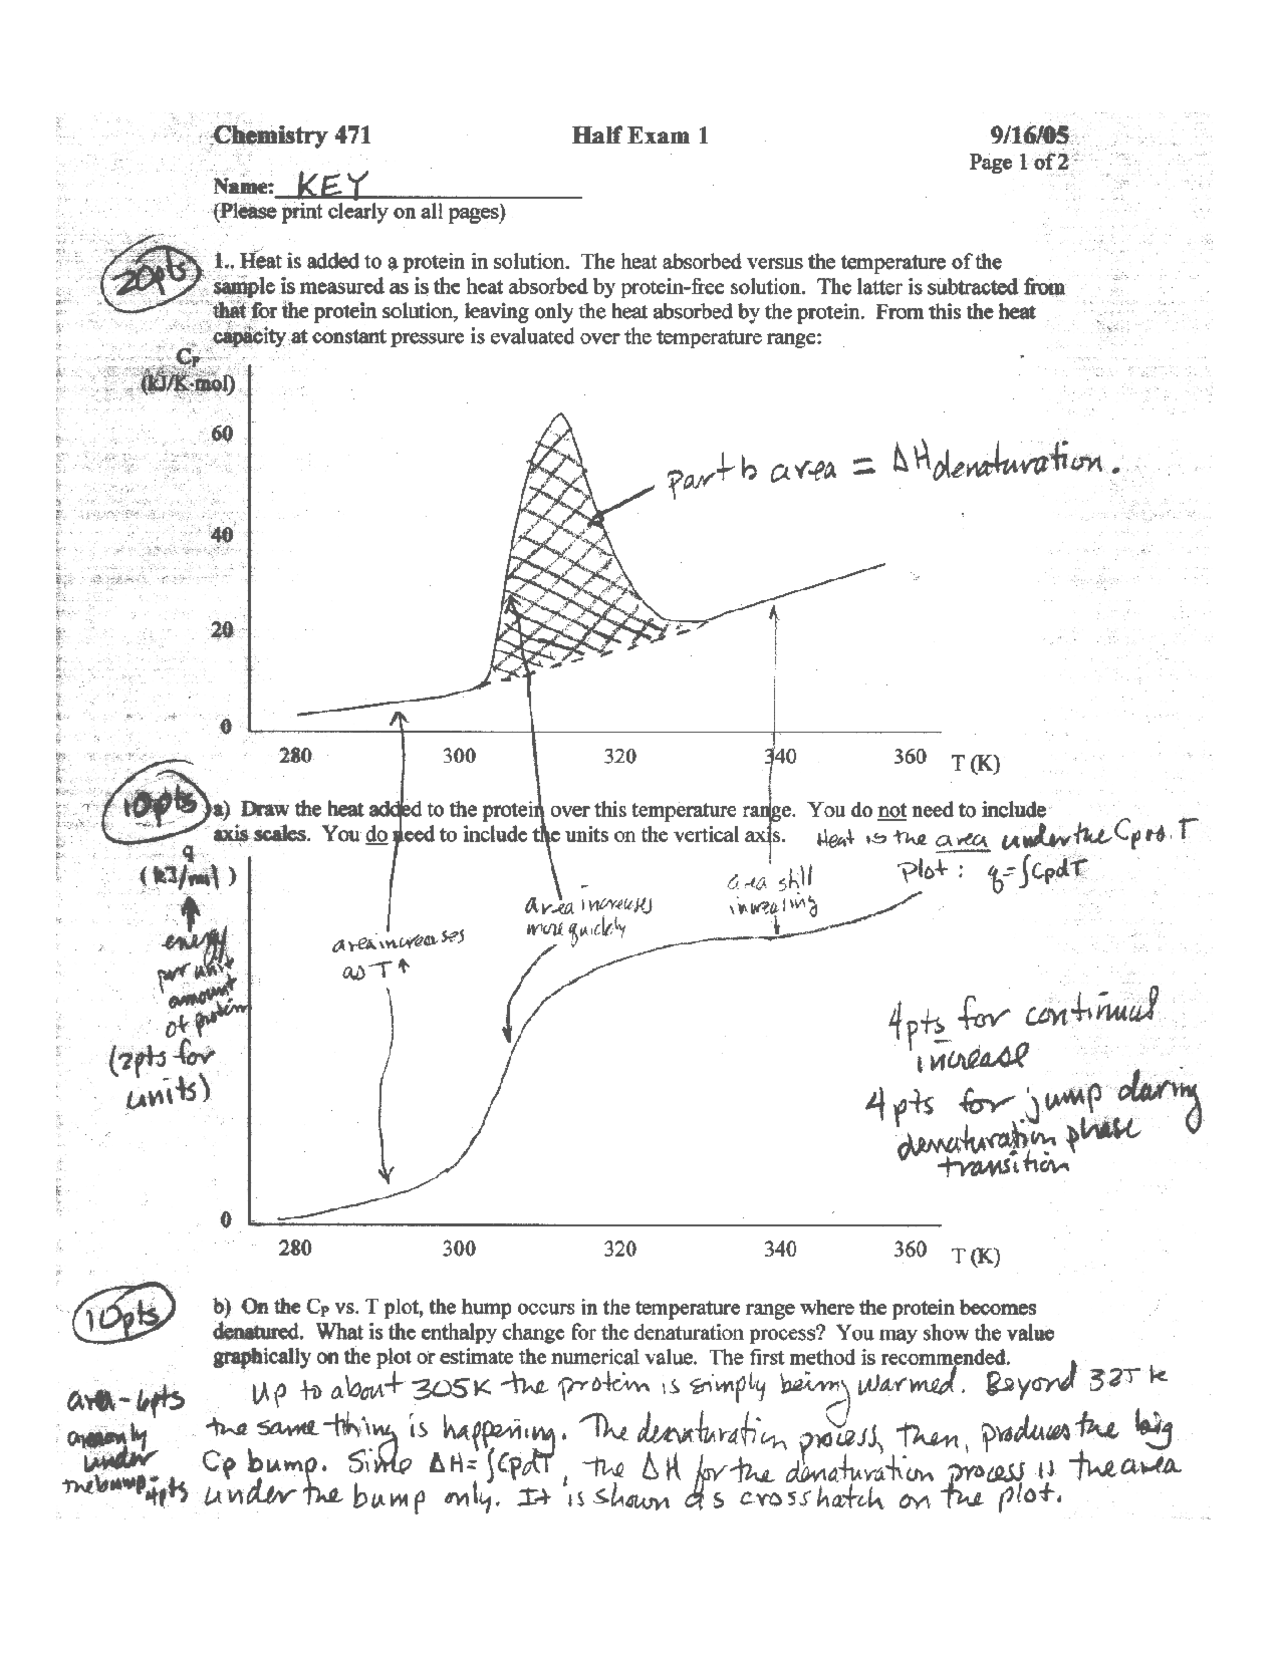 Chemistry 471 Half Exam 1 9/16/05
Page 1 of 2
Name: KEY
(Please print clearly on all pages)
20pts
1.. Heat is added to a protein in solution. The heat absorbed versus the temperature of the
sample is measured as is the heat absorbed by protein-free solution. The latter is subtracted from
that for the protein solution, leaving only the heat absorbed by the protein. From this the heat
capacity at constant pressure is evaluated over the temperature range:
CP
(kJ/K·mol)
60
part b area = ΔHdenaturation.
40
20
0
280 300 320 340 360 T (K)
10pts
a) Draw the heat added to the protein over this temperature range. You do not need to include
axis scales. You do need to include the units on the vertical axis. Heat is the area under the Cp vs. T
Plot: q=∫CpdT
q
(kJ/mol)
energy
per unit
amount
of protein
(2pts for
units)
area increases
as T↑
area increases
more quickly
area still
increasing
4pts for continual
increase
4 pts for jump during
denaturation phase
transition
0
280 300 320 340 360 T (K)
10pts
b) On the CP vs. T plot, the hump occurs in the temperature range where the protein becomes
denatured. What is the enthalpy change for the denaturation process? You may show the value
graphically on the plot or estimate the numerical value. The first method is recommended.
Up to about 305K the protein is simply being warmed. Beyond 325 K
the same thing is happening. The denaturation process, then, produces the big
Cp bump. Since ΔH=∫CpdT, the ΔH for the denaturation process is the area
under the bump only. It is shown as crosshatch on the plot.
area - 6pts
area only
under
the bump - 4pts